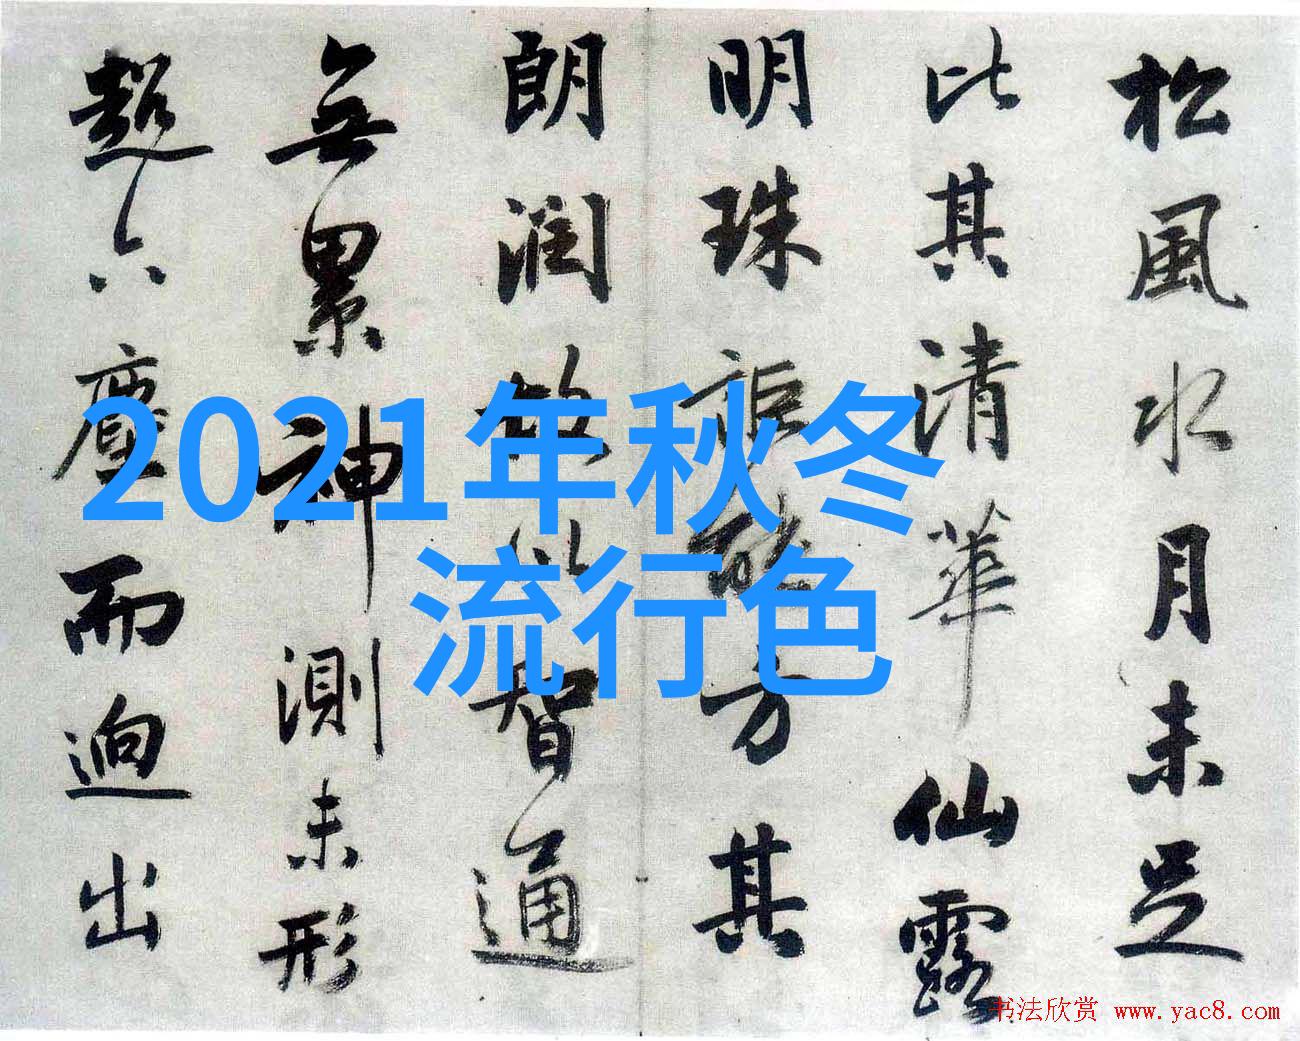 松風水月未足
比其清華仙露
明珠詎能方其
朗潤故以智通
無累神測未形
超六塵而逈出
2021年秋冬
流行色
书法欣赏 www.yac8.com